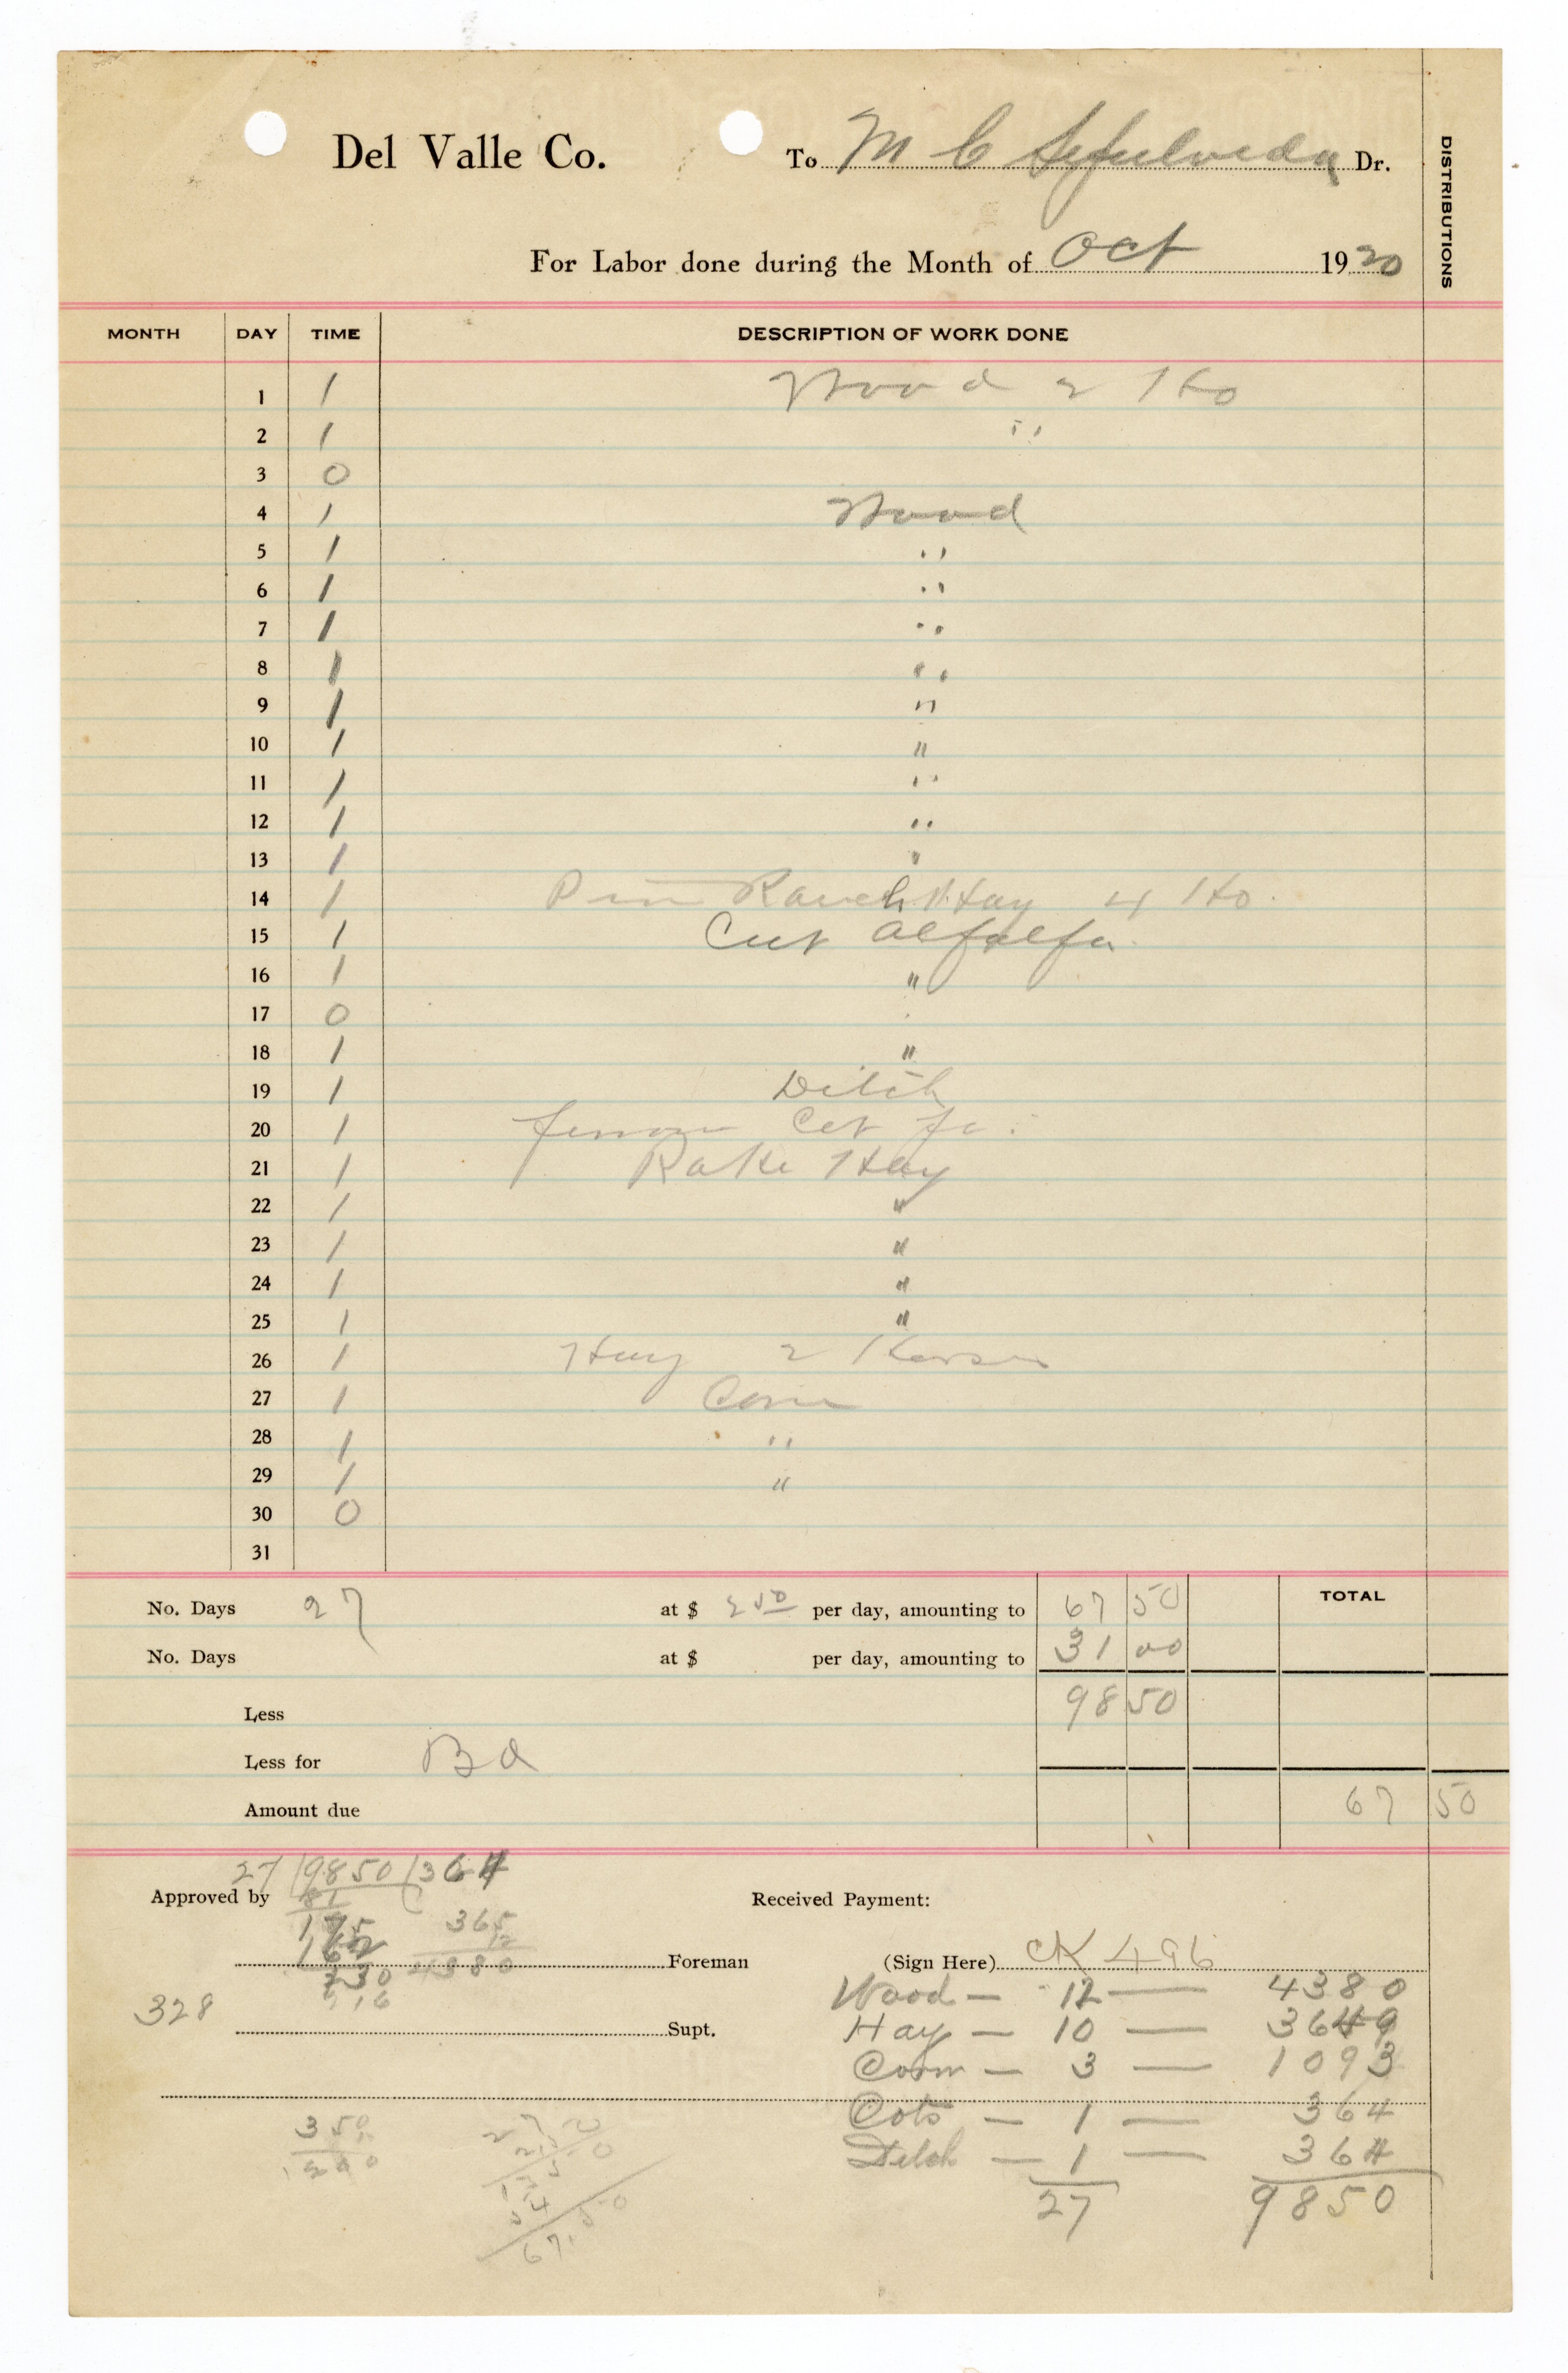 Del Valle Co. To M C Sepulveda Dr.
DISTRIBUTIONS
For Labor done during the Month of Oct 1920
MONTH DAY TIME DESCRIPTION OF WORK DONE
1 1 Wood 2 Ho
2 1 "
3 0
4 1 Wood
5 1 "
6 1 "
7 1 "
8 1 "
9 1 "
10 1 "
11 1 "
12 1 "
13 1 "
14 1 Ranch Hay 4 Ho.
15 1 Cut Alfalfa.
16 1 "
17 0
18 1 "
19 1 Ditch
20 1
21 1 Rake Hay
22 1 "
23 1 "
24 1 "
25 1 "
26 1 Hay 2 Horses
27 1 Corn
28 1 "
29 1 "
30 0
31
No. Days 27 at $ 2 50 per day, amounting to 67 50 TOTAL
No. Days at $ per day, amounting to 31 00
Less 98 50
Less for Bd
Amount due 67 50
27 9850 364
Approved by 81 Received Payment:
175 365
162 12
Foreman (Sign Here) CK 496
230 4380
216
Wood — 12 — 4380
328
Supt. Hay — 10 — 3649
Corn — 3 — 1093
Cots — 1 — 364
350
Ditch — 1 — 364
27 9850
67.50